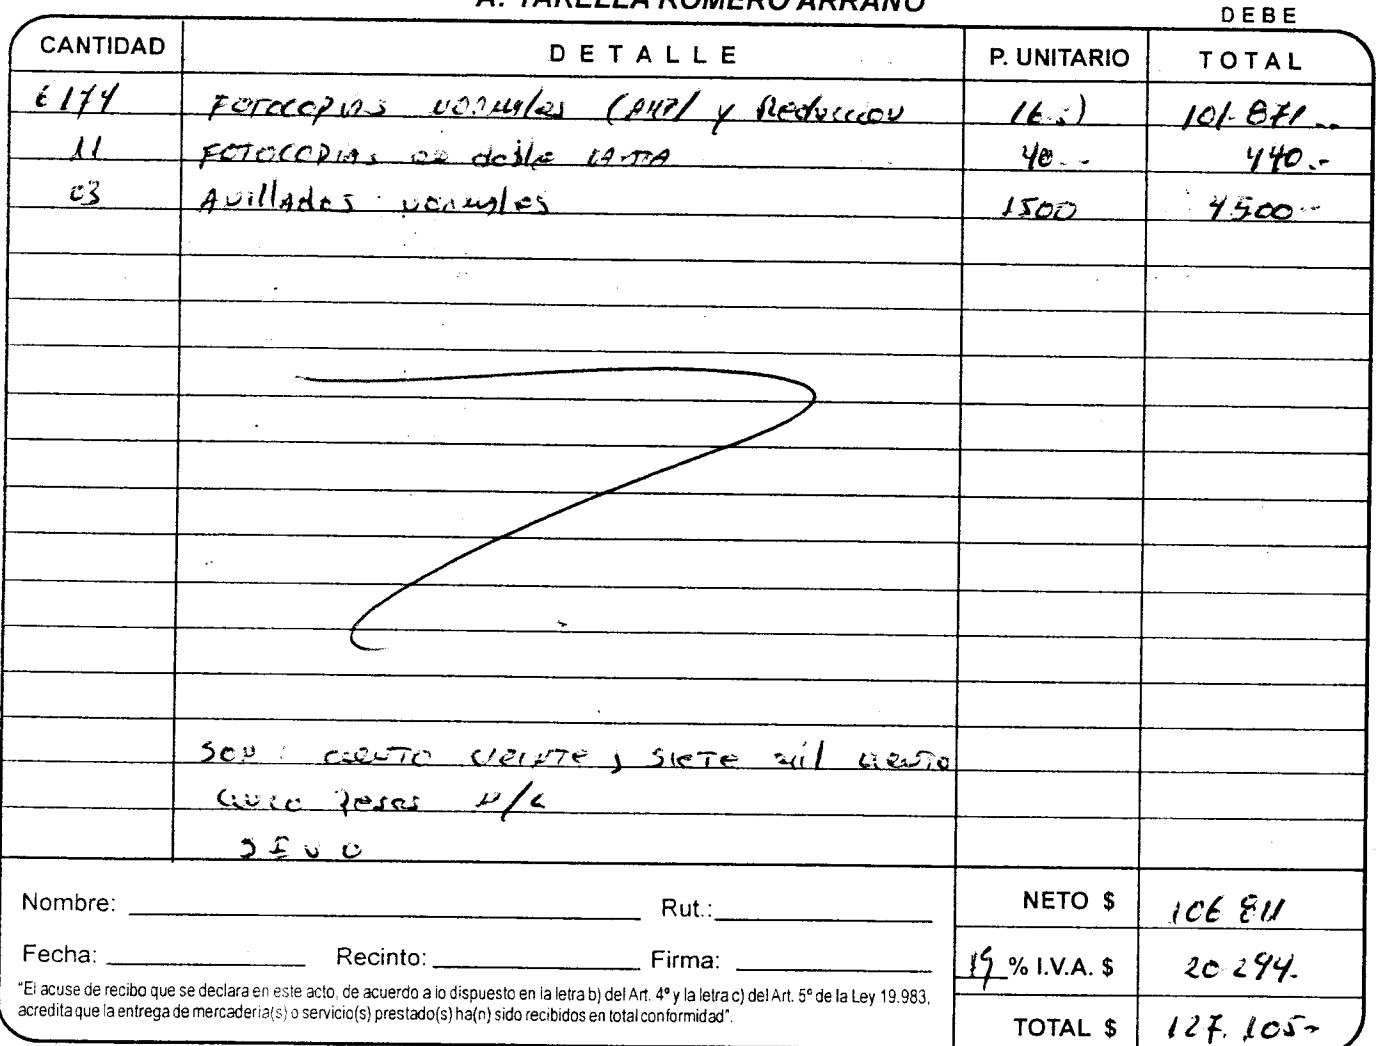 A. YARELLA ROMERO ARRAÑO
DEBE
CANTIDAD DETALLE P. UNITARIO TOTAL
6174 Fotocopias normales (Ampl y Reduccion 16.5) 101.871.-
11 Fotocopias doble carta 40.- 440.-
03 Anillados normales 1500 4500.-
Son: ciento veinte y siete mil ciento
cinco pesos M/L
Nombre: Rut.:
Fecha: Recinto: Firma:
"El acuse de recibo que se declara en este acto, de acuerdo a lo dispuesto en la letra b) del Art. 4º y la letra c) del Art. 5º de la Ley 19.983,
acredita que la entrega de mercadería(s) o servicio(s) prestado(s) ha(n) sido recibidos en total conformidad".
NETO $ 106 811
19 % I.V.A. $ 20 294.
TOTAL $ 127.105-